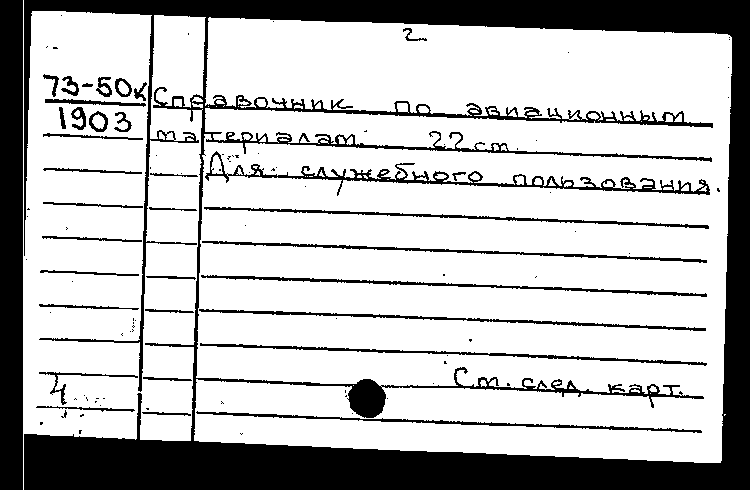 2
73-50к Справочник по авиационным
1903 материалам. 22 cm.
Для служебного пользования.
См. след. карт.
4